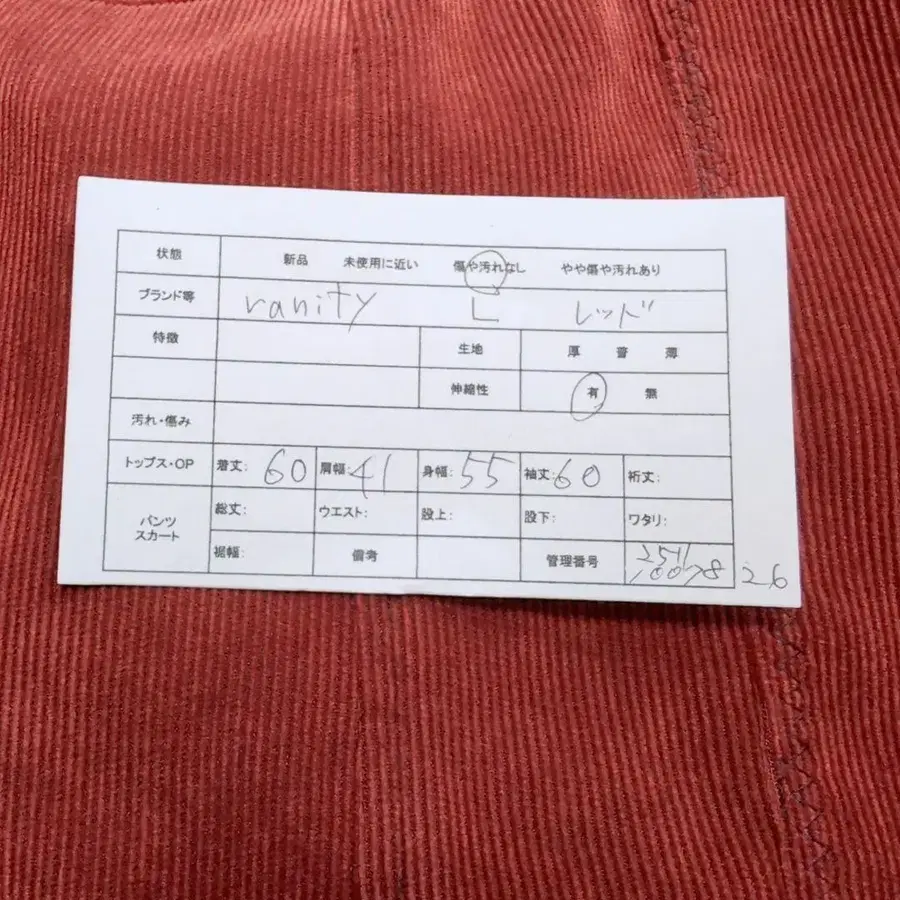 状態 新品 未使用に近い 傷や汚れなし やや傷や汚れあり
ブランド等 vanity L レッド
特徴 生地 厚 普 薄
伸縮性 有 無
汚れ・傷み
トップス・OP 着丈: 60 肩幅: 41 身幅: 55 袖丈: 60 裄丈:
パンツ スカート 総丈: ウエスト: 股上: 股下: ワタリ:
裾幅: 備考 管理番号 26